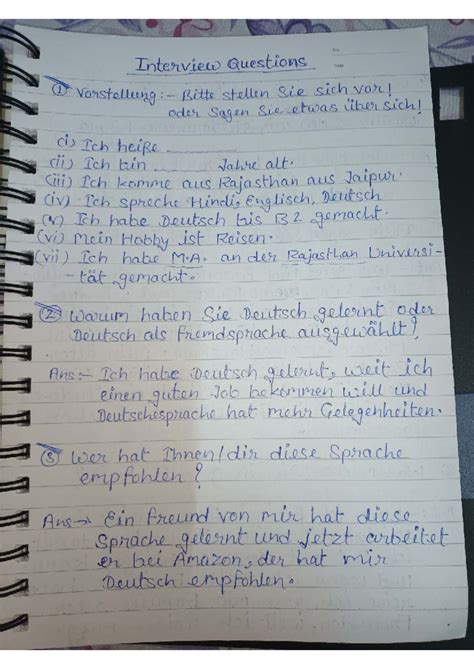 Interview Questions
① Vorstellung:- Bitte stellen Sie sich vor!
oder Sagen Sie etwas über sich!
(i) Ich heiße ________
(ii) Ich bin ________ Jahre alt.
(iii) Ich komme aus Rajasthan aus Jaipur.
(iv) Ich spreche Hindi, Englisch, Deutsch
(v) Ich habe Deutsch bis B2 gemacht.
(vi) Mein Hobby ist Reisen.
(vii) Ich habe M.A. an der Rajasthan Universi-
-tät gemacht.
② Warum haben Sie Deutsch gelernt oder
Deutsch als fremdsprache ausgewählt?
Ans:- Ich habe Deutsch gelernt, weit ich
einen guten Job bekommen will und
Deutschesprache hat mehr Gelegenheiten.
③ Wer hat Ihnen/dir diese Sprache
empfohlen?
Ans→ Ein Freund von mir hat diese
Sprache gelernt und jetzt arbeitet
er bei Amazon, der hat mir
Deutsch empfohlen.